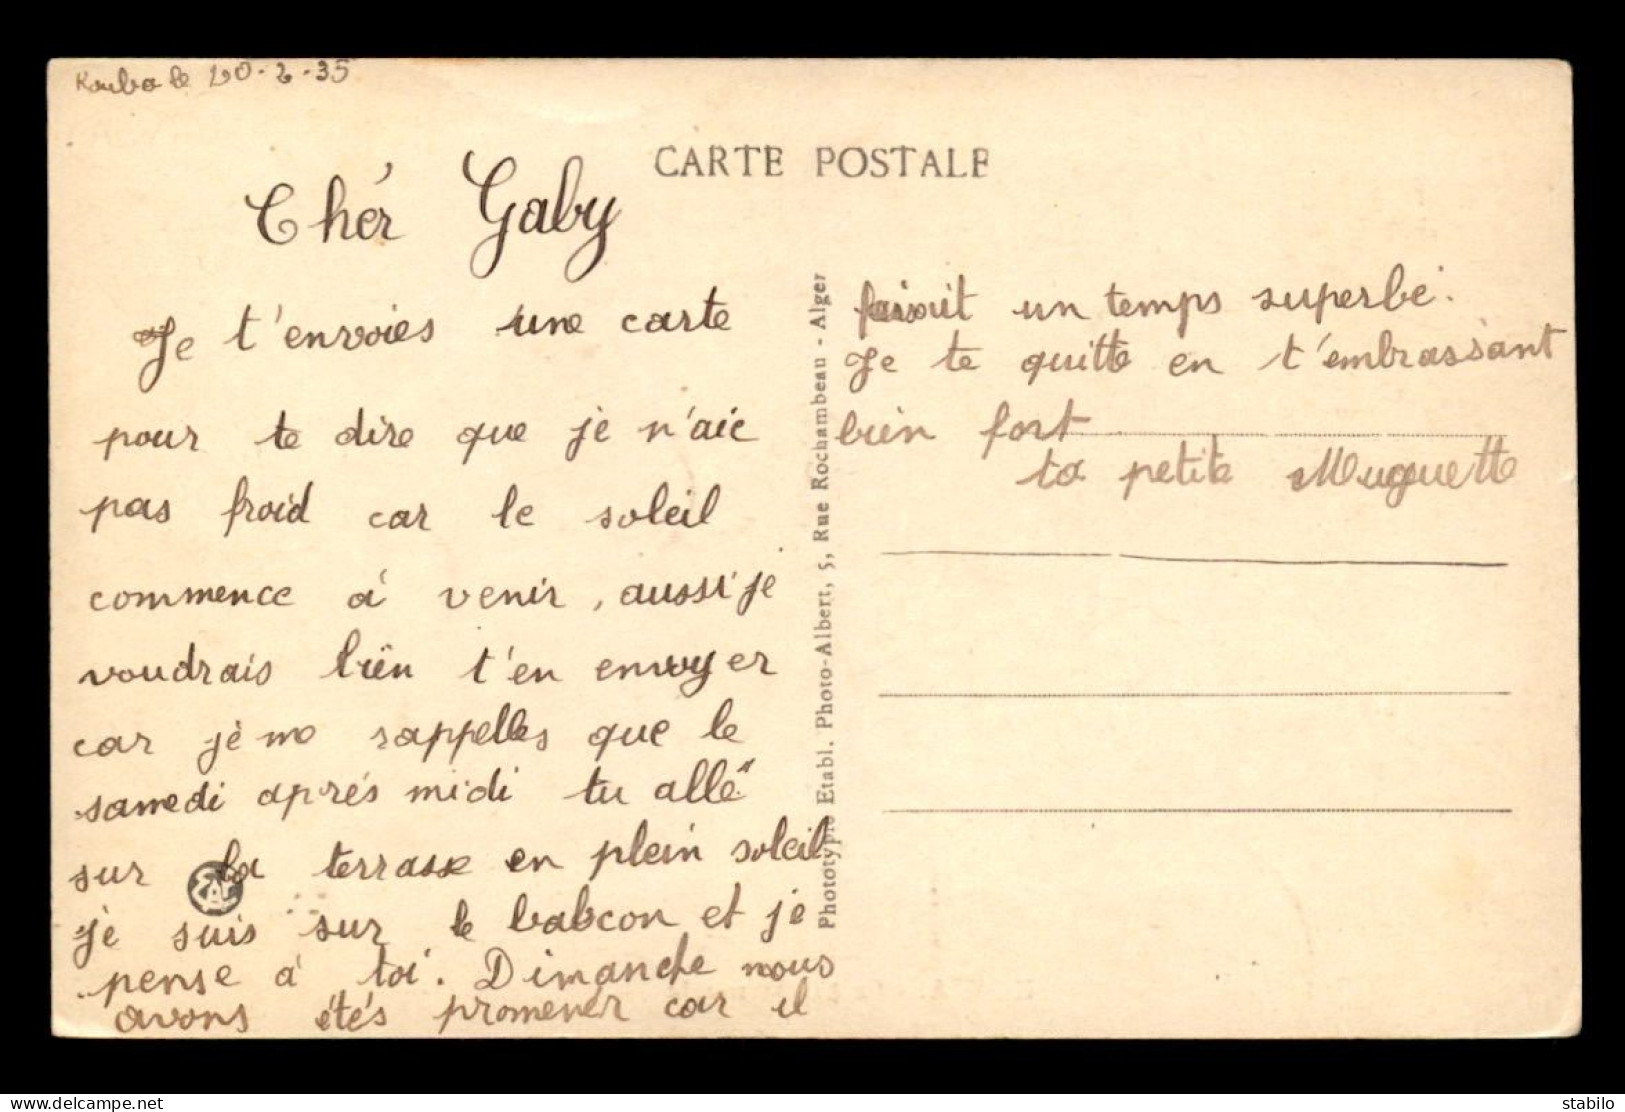 Kouba le 20-2-35
CARTE POSTALE
Chér Gaby
Je t'envoies une carte
pour te dire que je n'aie
pas froid car le soleil
commence à venir, aussi je
voudrais bien t'en envoyer
car je me rappelles que le
samedi aprés midi tu allé
sur la terrasse en plein soleil
je suis sur le babcon et je
pense à toi. Dimanche nous
avons étés promener car il
faisait un temps superbe.
Je te quitte en t'embrassant
bien fort
ta petite Muguette
Phototypie Etabl. Photo-Albert, 5, Rue Rochambeau - Alger
delcampe.net
stabilo